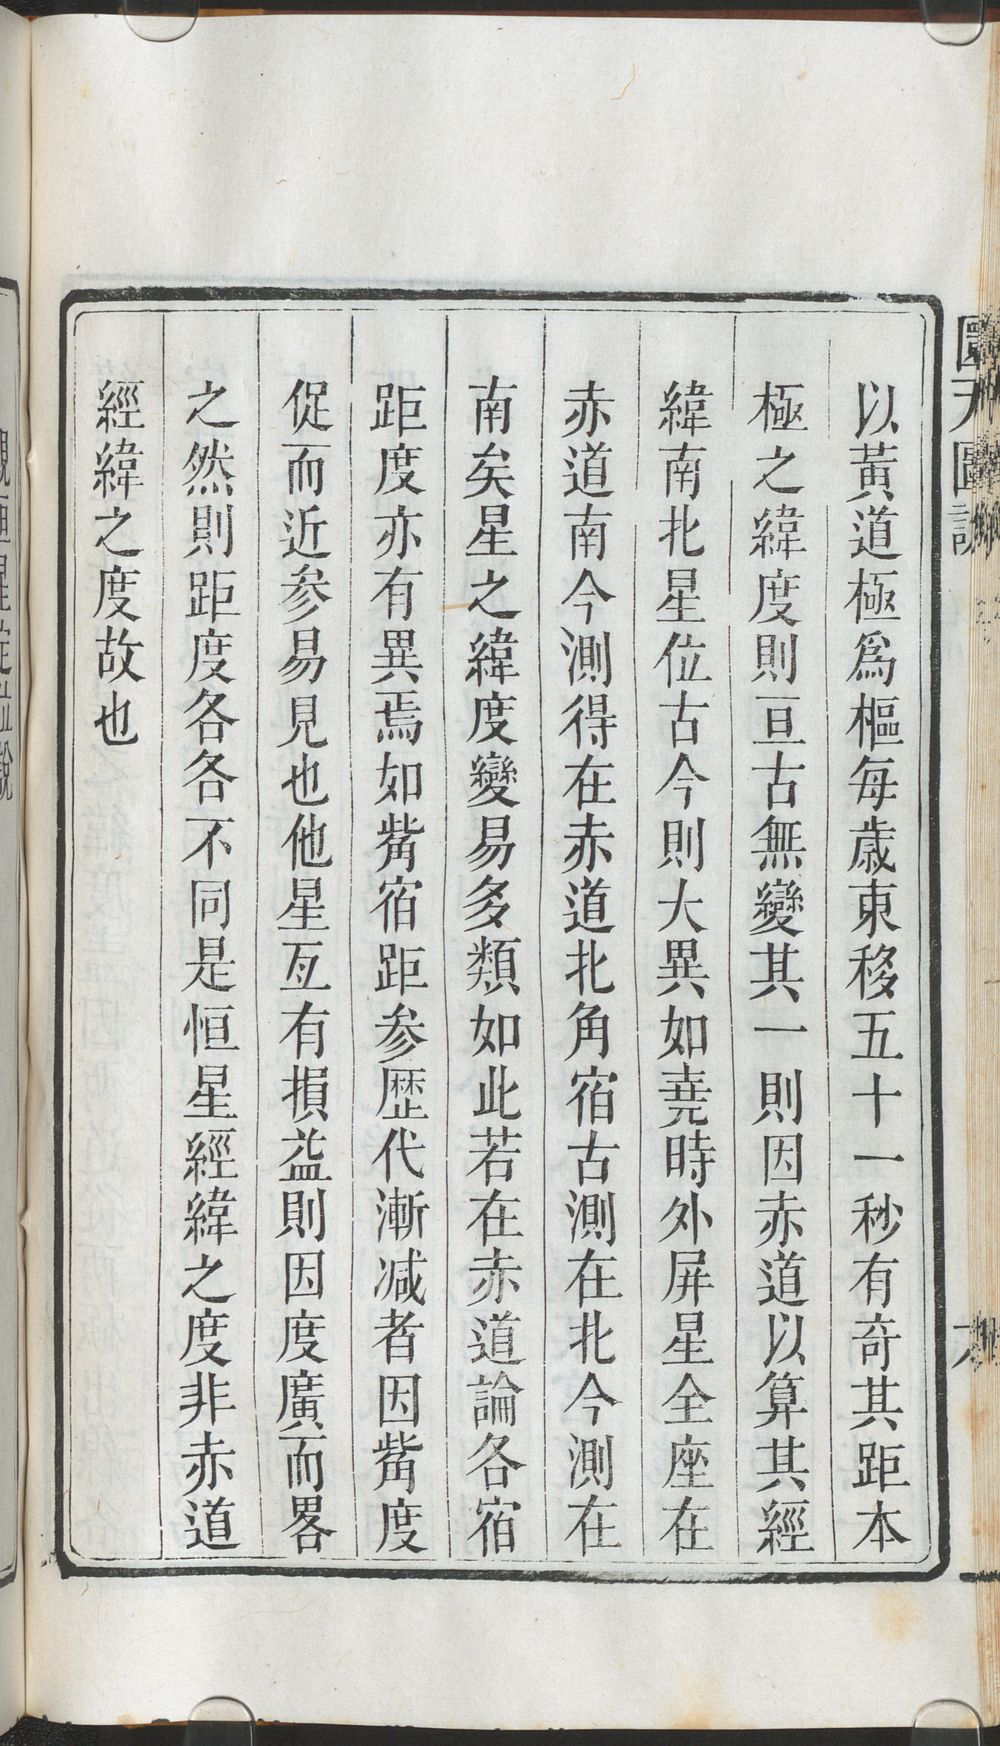 以黃道極爲樞每歲東移五十一秒有奇其距本
極之緯度則亘古無變其一則因赤道以算其經
緯南北星位古今則大異如堯時外屏星全座在
赤道南今測得在赤道北角宿古測在北今測在
南矣星之緯度變易多類如此若在赤道論各宿
距度亦有異焉如觜宿距参歴代漸减者因觜度
促而近参易見也他星亙有損益則因度廣而畧
之然則距度各各不同是恒星經緯之度非赤道
經緯之度故也